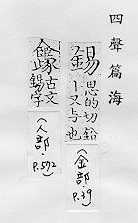 四聲篇海
錫思的切鈆
丨又与也
(金部
P.39)
古文
錫字
(人部
P.572)